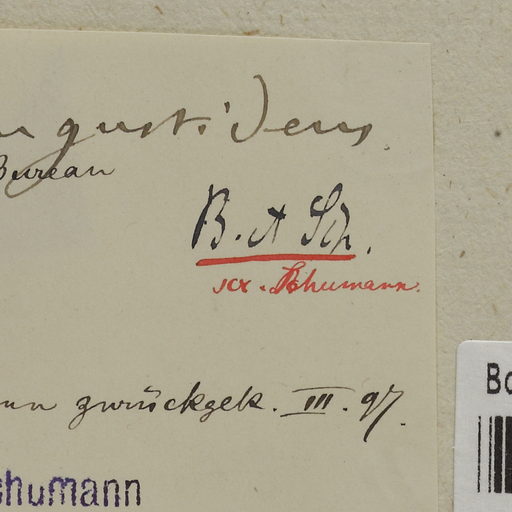 angustidens
Bureau
B. et Sch.
scr. Schumann.
ann zurückgek. III. 97.
chumann
Bo